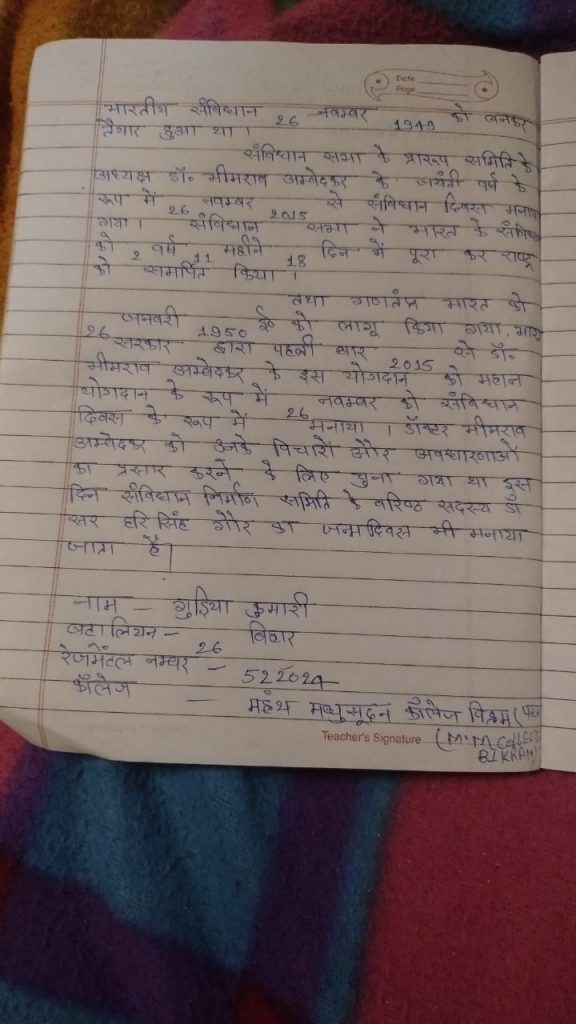 Date
Page
भारतीय संविधान 26 नवम्बर 1949 को बनकर
तैयार हुआ था।
संविधान सभा के प्रारूप समिति के
अध्यक्ष डॉ॰ भीमराव अम्बेदकर के जयंती वर्ष के
रूप में 26 नवम्बर 2015 से संविधान दिवस मनाया
गया। संविधान सभा ने भारत के संविधान
को 2 वर्ष 11 महीने 18 दिन में पूरा कर राष्ट्र
को समर्पित किया।
तथा गणतंत्र भारत को
26 जनवरी 1950 ई॰ को लागू किया गया,
सरकार द्वारा पहली बार 2015 से डॉ॰
भीमराव अम्बेदकर के इस योगदान को महान
योगदान के रूप में 26 नवम्बर को संविधान
दिवस के रूप में मनाया। डॉक्टर भीमराव
अम्बेदकर को उनके विचारों और अवधारणाओं
का प्रसार करने के लिए चुना गया था इस
दिन संविधान निर्माण समिति के वरिष्ठ सदस्य डॉ
सर हरि सिंह गौर का जन्मदिवस भी मनाया
जाता है।
नाम – गुड़िया कुमारी
बटालियन – 26 बिहार
रेजमेंटल नम्बर – 522024
कॉलेज – महंथ मधुसूदन कॉलेज विक्रम
(M.M College
BIKRAM)
Teacher's Signature